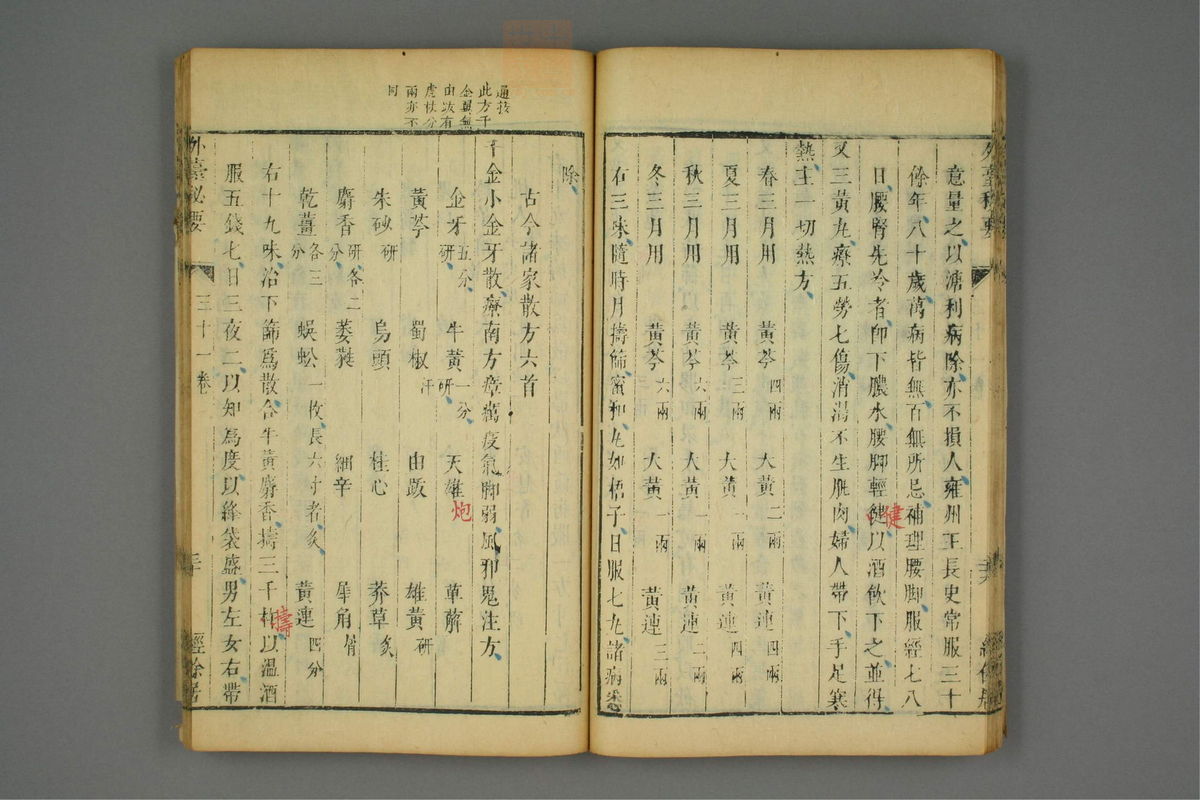 外臺秘要
意量之以溏利病除亦不損人雍州王長史常服三十
餘年八十歲萬病皆無百無所忌補理腰脚服經七八
日腰腎先冷者卽下膿水腰脚輕健以酒飮下之並得
健
又三黃丸療五勞七傷消渴不生肌肉婦人帶下手足寒
熱主一切熱方
春三月用 黃芩四兩 大黃二兩 黃連四兩
夏三月用 黃芩三兩 大黃一兩 黃連四兩
秋三月用 黃芩六兩 大黃一兩 黃連二兩
冬三月用 黃芩六兩 大黃一兩 黃連三兩
右三味隨時月擣篩蜜和丸如梧子日服七丸諸病悉
除
古今諸家散方六首
千金小金牙散療南方瘴癘疫氣脚弱風邪鬼注方
通按
此方千
金翼無
由跋有
虎杖分
兩亦不
同
金牙五分研 牛黃一分研 天雄 萆薢
炮
黃芩 蜀椒汗 由跋 雄黃研
朱砂研 烏頭 桂心 莽草炙
麝香研各二分 萎蕤 細辛 犀角屑
乾薑各三分 蜈蚣一枚長六寸者炙 黃連四分
右十九味治下篩爲散合牛黃麝香擣三千杵以溫酒
擣
服五錢匕日三夜二以知爲度以絳袋盛男左女右帶
外臺秘要 三十一卷 三十 經餘居